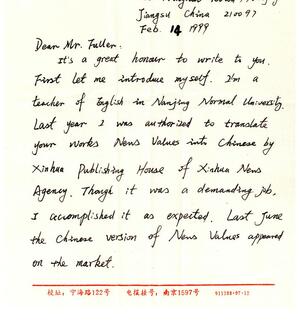 Jiangsu China 210097
Feb. 14 1999
Dear Mr. Fuller.
It's a great honour to write to you.
First let me introduce myself. I'm a
teacher of English in Nanjing Normal University.
Last year I was authorized to translate
your works News Values into Chinese by
Xinhua Publishing House of Xinhua News
Agency. Though it was a demanding job,
I accomplished it as expected. Last June
the Chinese version of News Values appeared
on the market.
校址：宁海路122号 电报挂号：南京1597号 911288·97·12